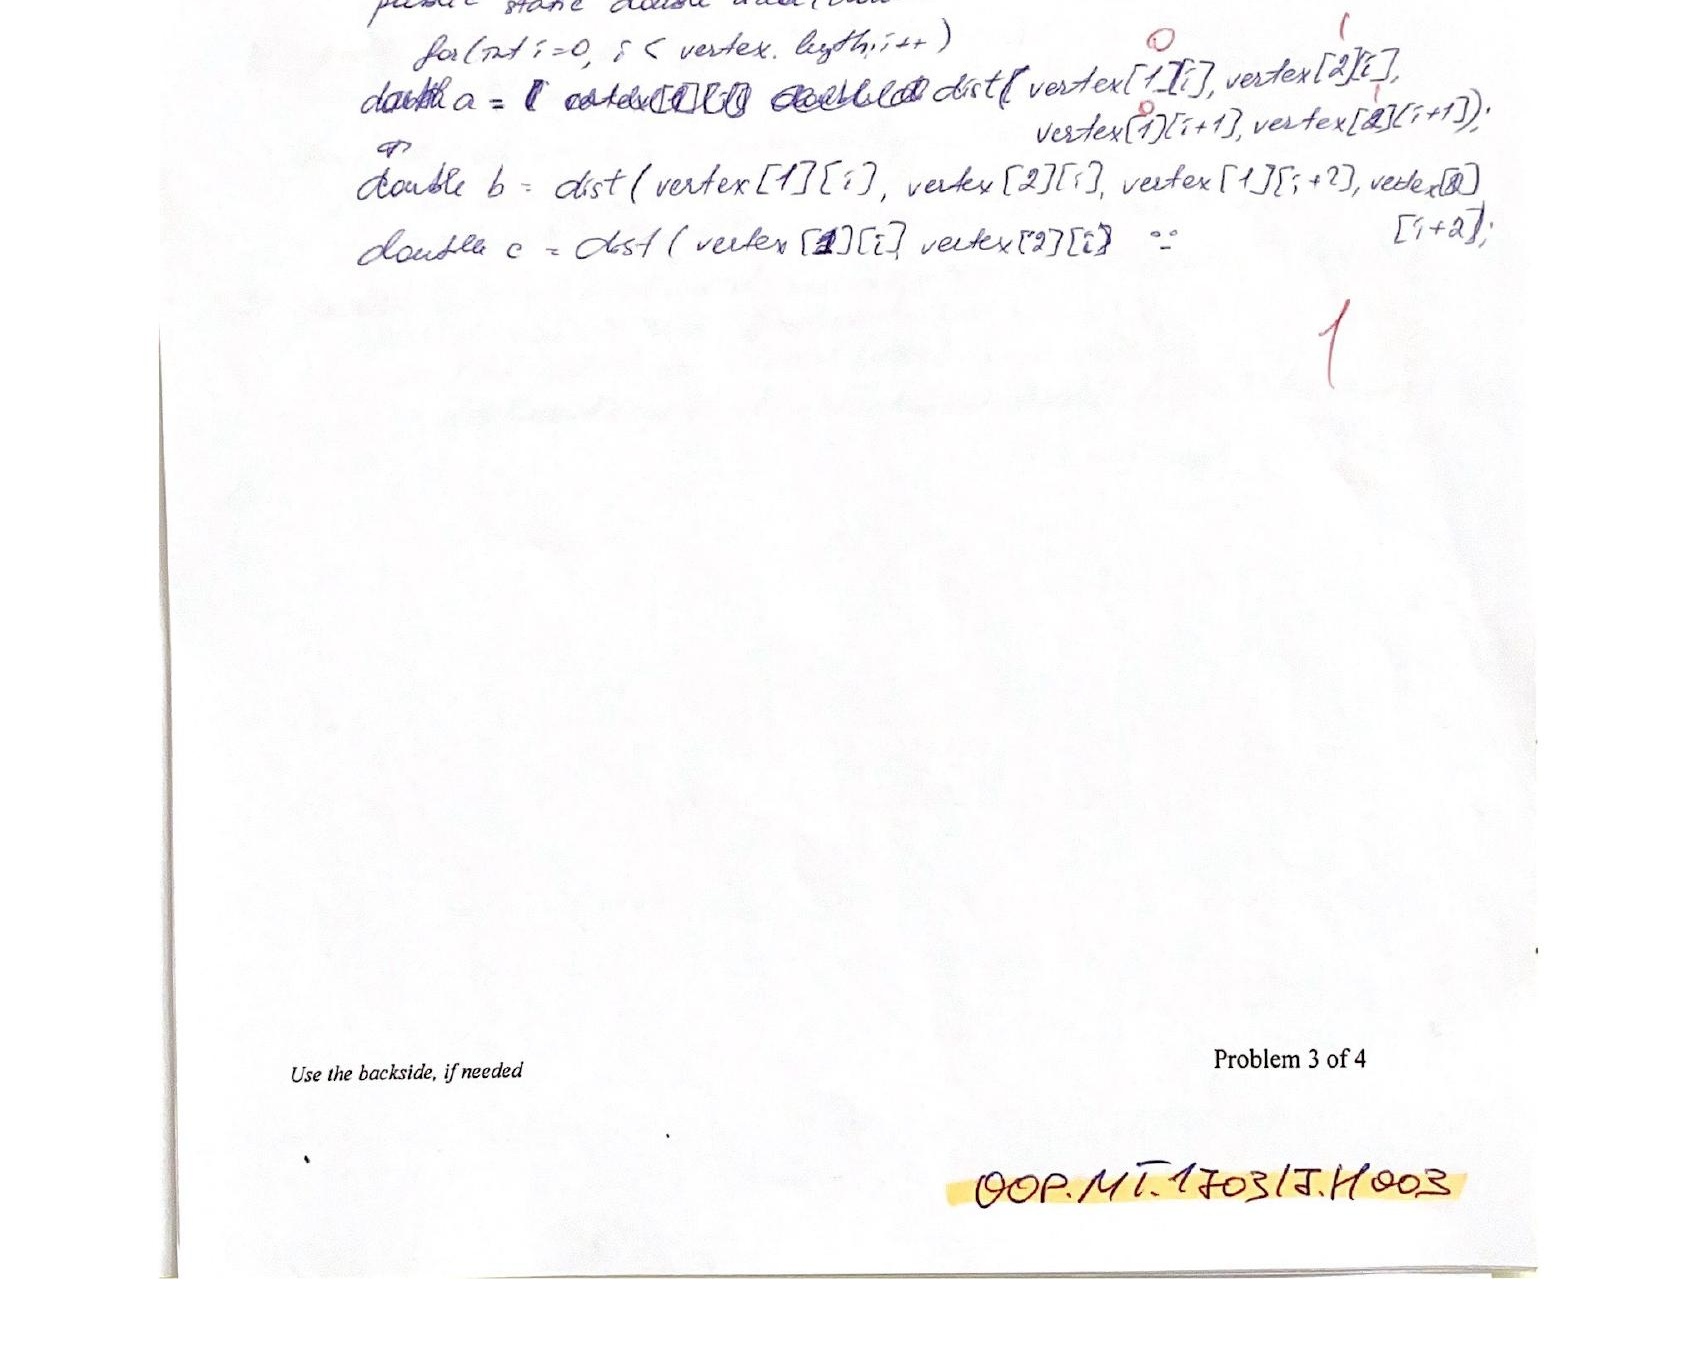 public static double area(
for(int i=0, i < vertex.legth; i++)
0 1
double a = dist( vertex[1][i], vertex[2][i],
0 1
vertex[1][i+1], vertex[2][i+1]);
double b = dist( vertex[1][i], vertex[2][i], vertex[1][i+2], vertex[2]
[i+2];
double c = dist( vertex[1][i], vertex[2][i]
1
Use the backside, if needed
Problem 3 of 4
OOP.MT.170317.H003